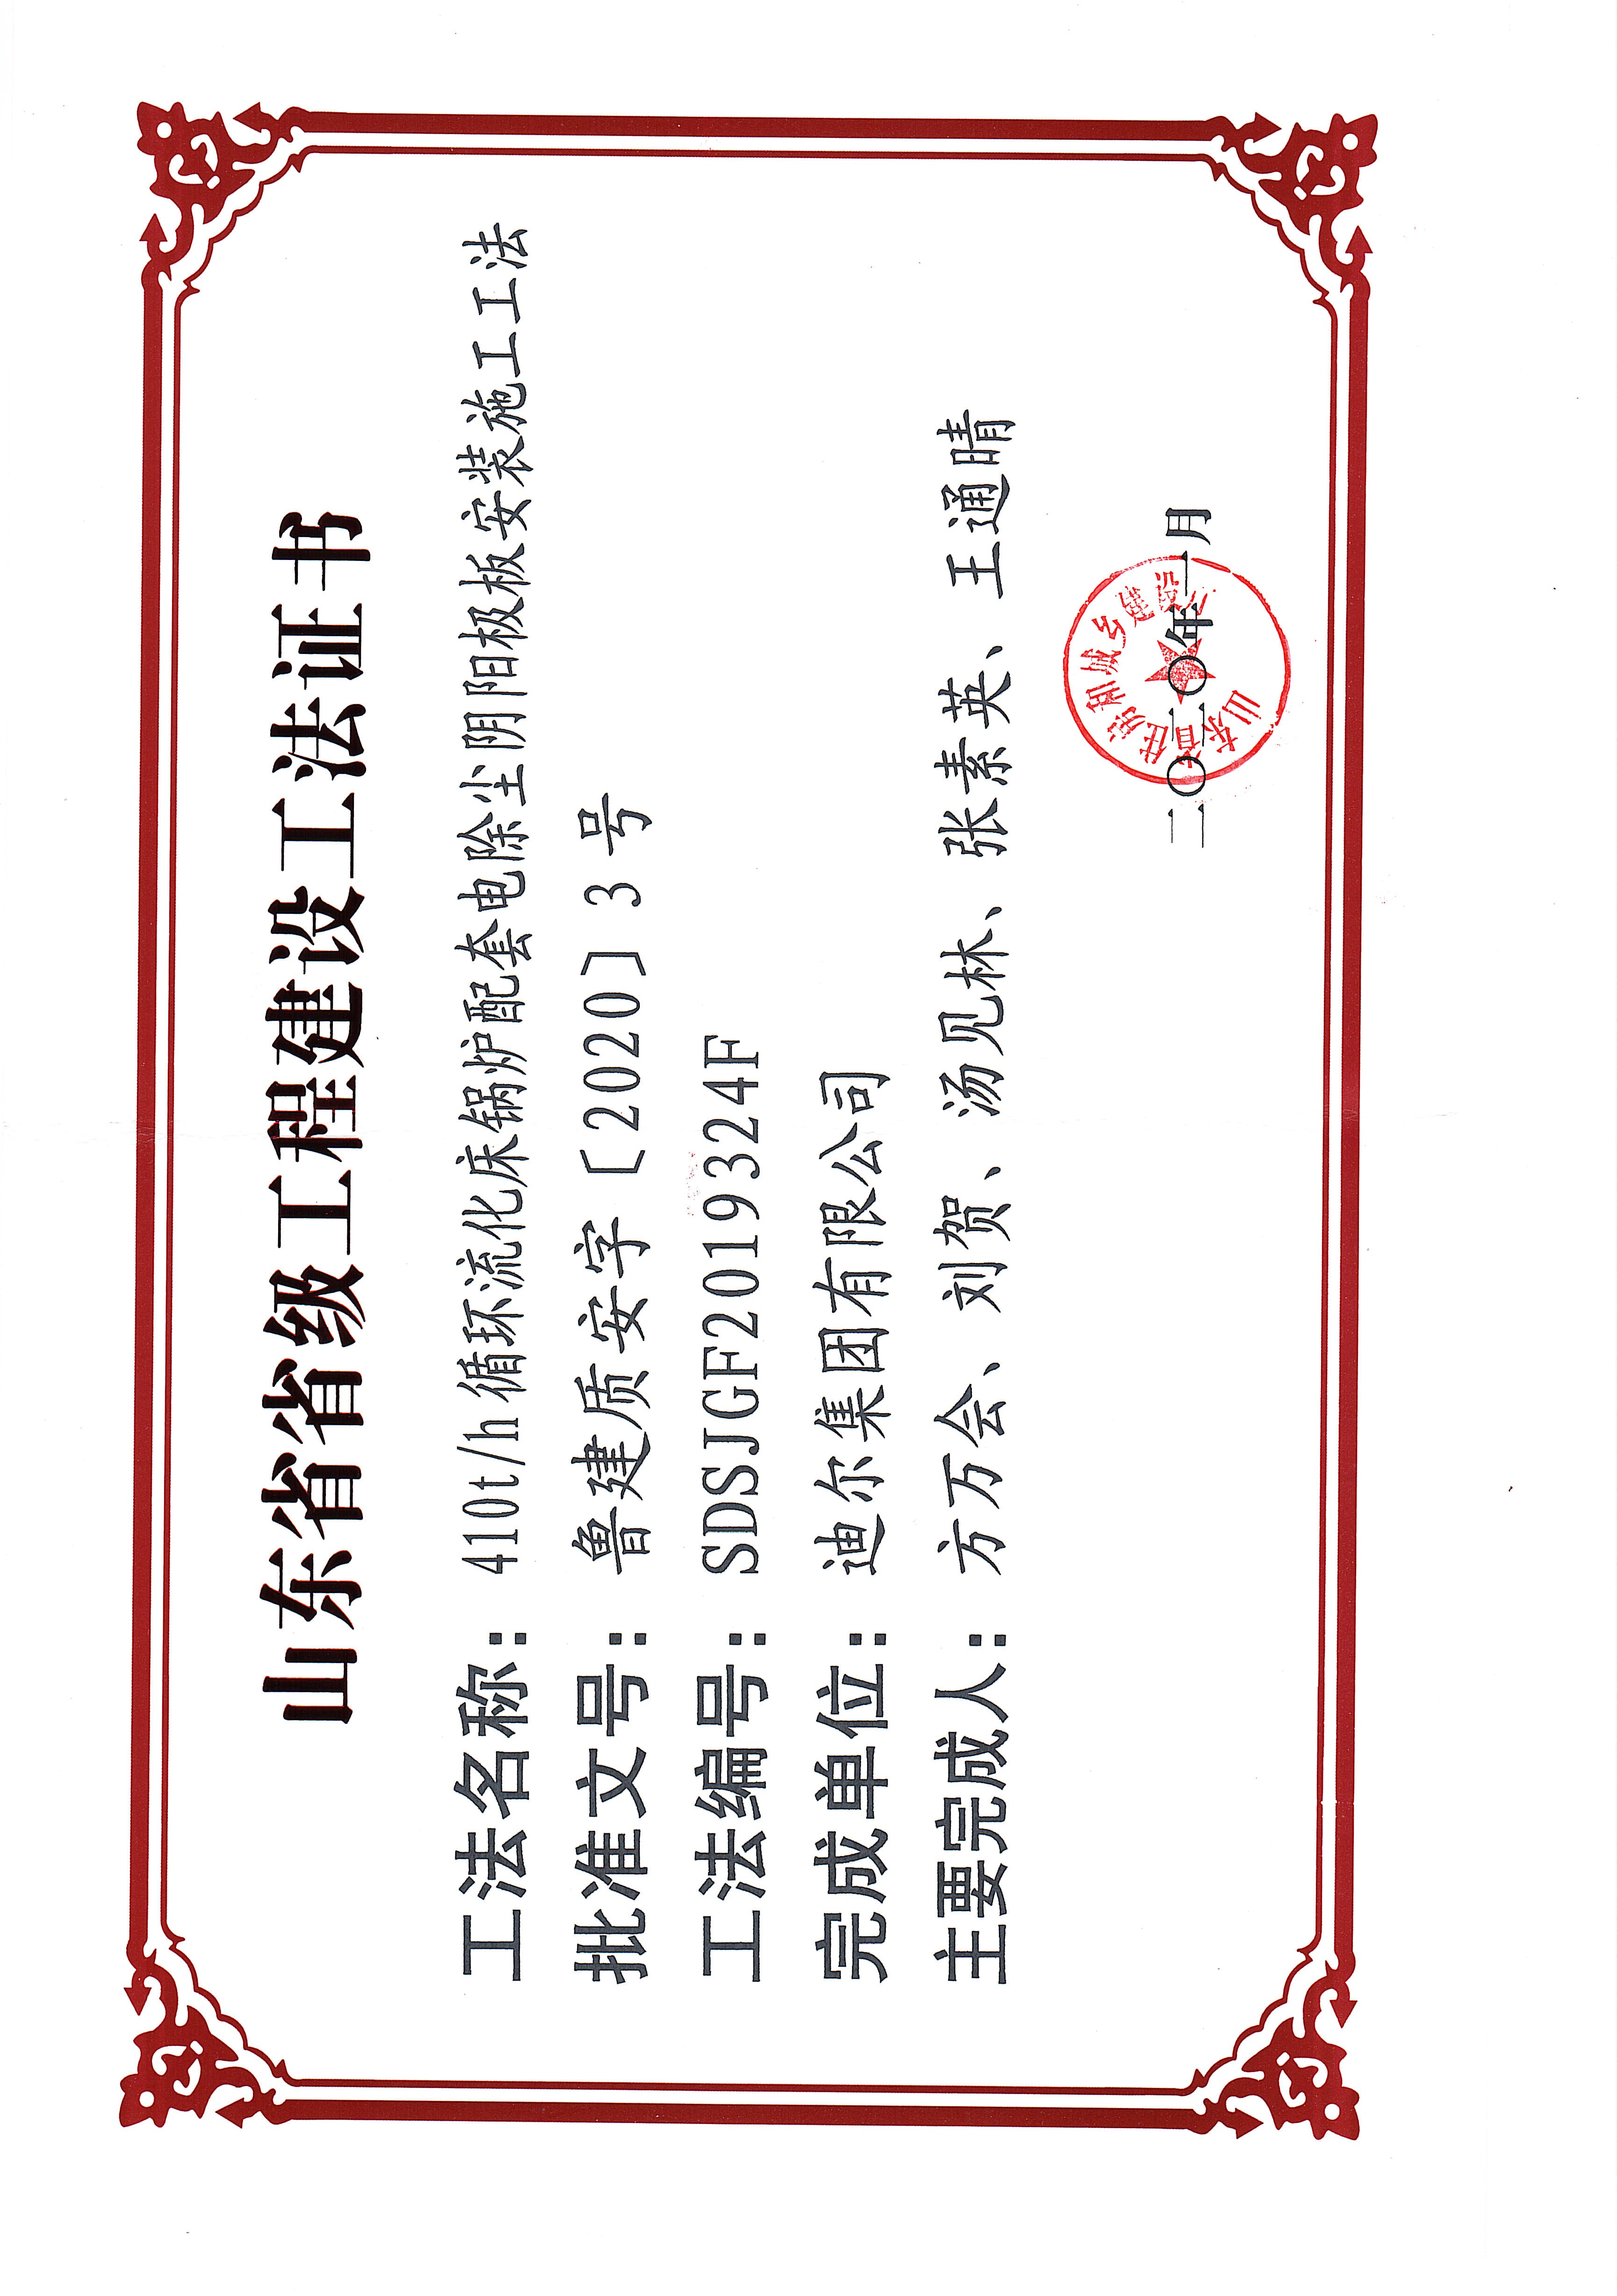 山东省省级工程建设工法证书
工法名称：410t/h循环流化床锅炉配套电除尘阴阳极板安装施工工法
批准文号：鲁建质安字〔2020〕3号
工法编号：SDSJGF2019324F
完成单位：迪尔集团有限公司
主要完成人：方万会、刘贺、汤见林、张素英、王通晴
山东省住房和城乡建设厅
二〇二〇年一月